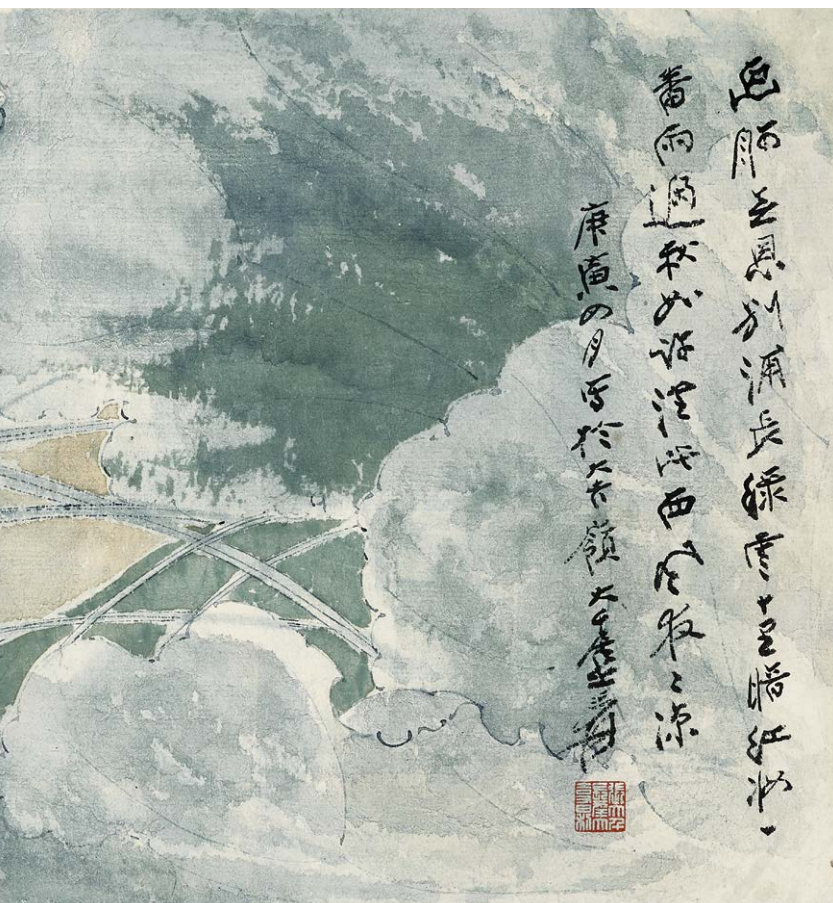 画舸無恩別浦長綠雲十里暗紅妝一
番雨過秋如許從此西風夜〻涼
庚寅四月寫於大吉嶺大千居士張爰